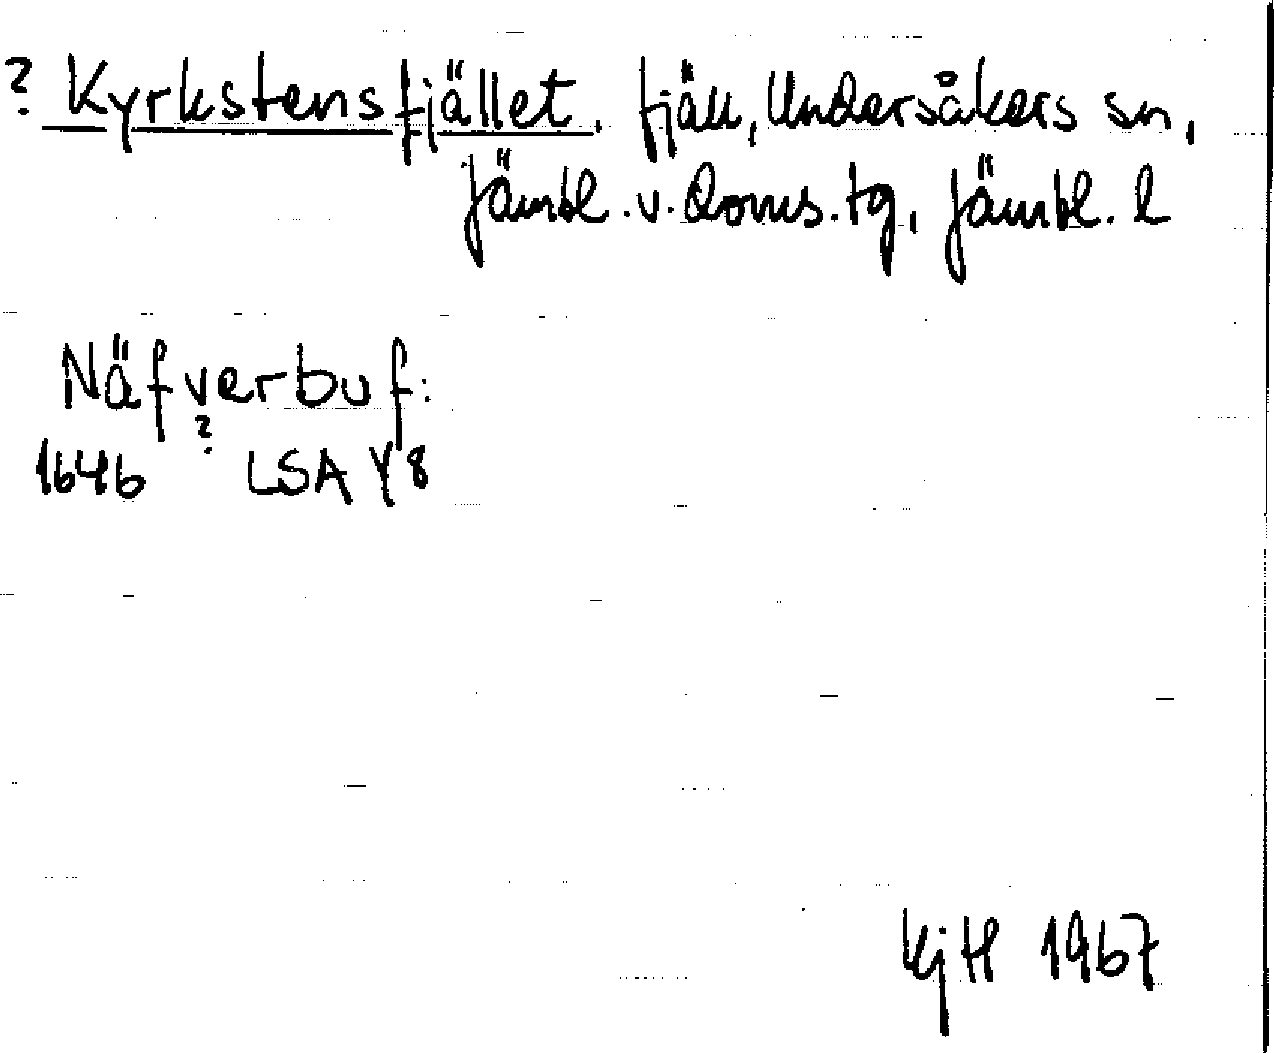 ? Kyrkstensfjället. fjäll, Undersåkers sn,
Jämtl. v. doms. tg, Jämtl. l
Näfverbuf:
1646 ? LSA Y8
KjH 1967